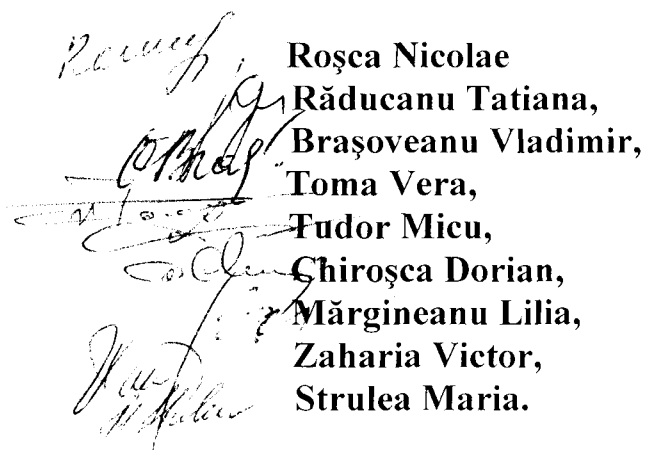 Roşca Nicolae
Răducanu Tatiana,
Braşoveanu Vladimir,
Toma Vera,
Tudor Micu,
Chiroşca Dorian,
Mărgineanu Lilia,
Zaharia Victor,
Strulea Maria.